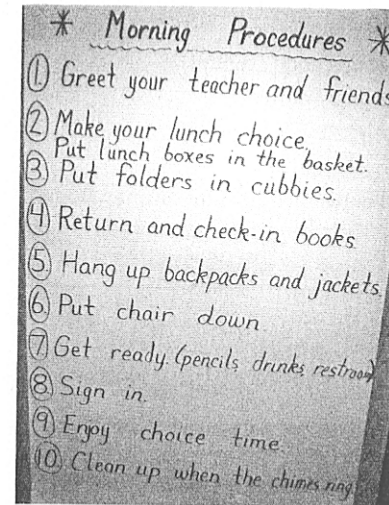 * Morning Procedures *
① Greet your teacher and friends
② Make your lunch choice.
Put lunch boxes in the basket.
③ Put folders in cubbies.
④ Return and check-in books.
⑤ Hang up backpacks and jackets.
⑥ Put chair down
⑦ Get ready. (pencils, drinks, restroom)
⑧ Sign in.
⑨ Enjoy choice time.
⑩ Clean up when the chimes ring.